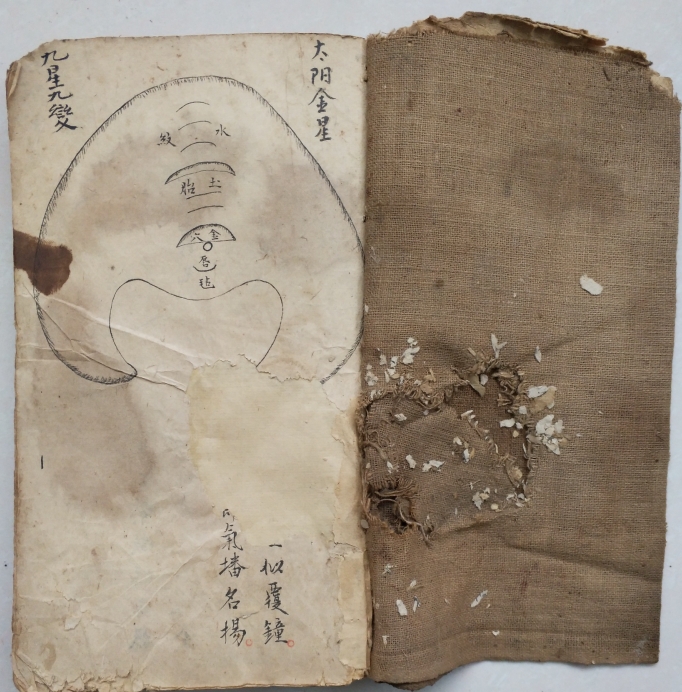 太阳金星
九星九變
水紋
土胎
金穴
唇
毡
一似覆鐘
氣墦名揚